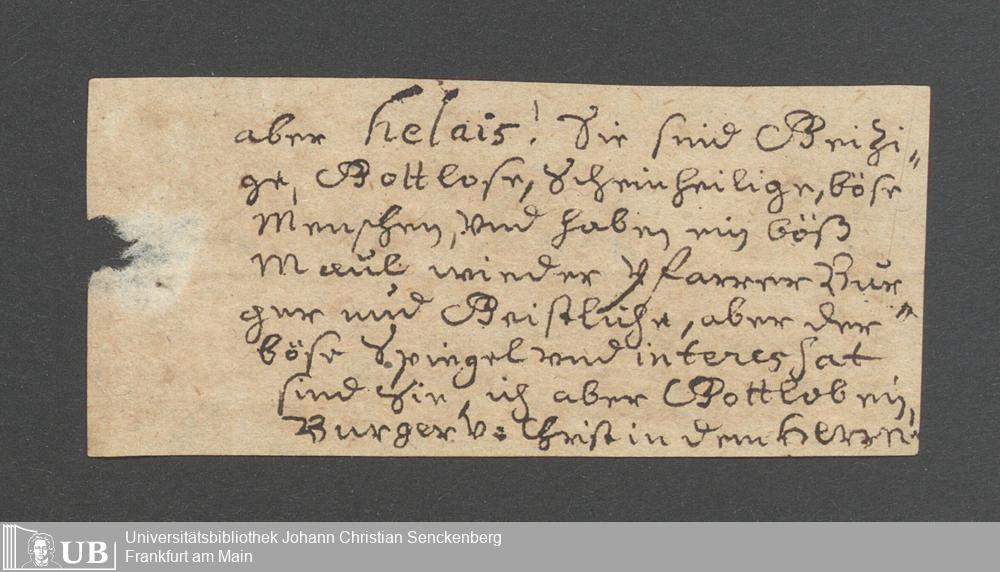 aber helais! Sie sind Geitzi=
ge, Gottlose, Scheinheilige, böse
Menschen, vnd haben ein böß
Maul wieder Pfarrer Bur=
ger und Geistliche, aber der
böse Spiegel vnd interessat
sind Sie, ich aber Gottlob ein
Burger v. Christ in dem HErren
UB
Universitätsbibliothek Johann Christian Senckenberg
Frankfurt am Main